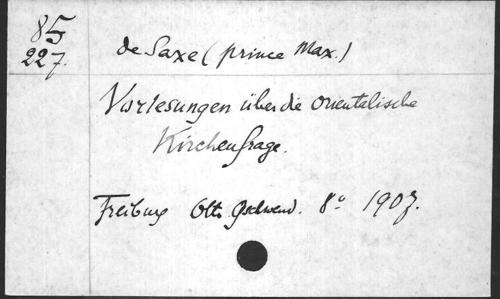 85
227.
de Saxe (prince Max.)
Vorlesungen über die orientalische
Kirchenfrage.
Freiburg Otto Gschwend. 8° 1907.